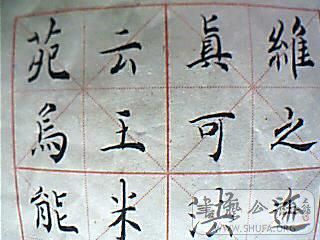 維之
眞可法
云王米
苑烏能
WWW.SHUFA.ORG